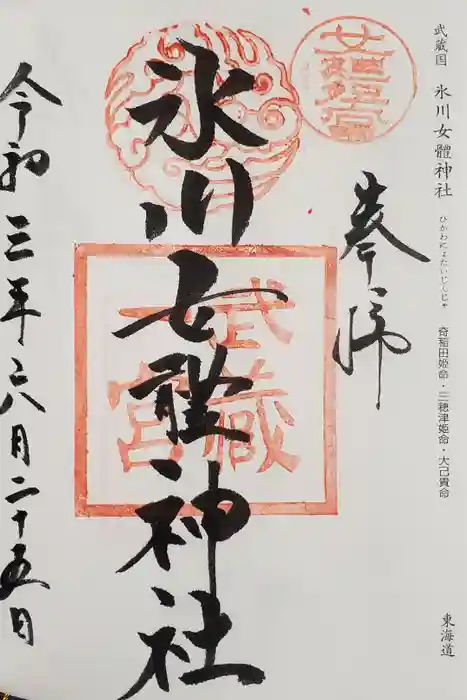 武蔵国 氷川女體神社 ひかわにょたいじんじゃ 奇稲田姫命・三穂津姫命・大己貴命 東海道
奉拝
女體宮
氷川女體神社
武蔵
一宮
令和三年六月二十五日